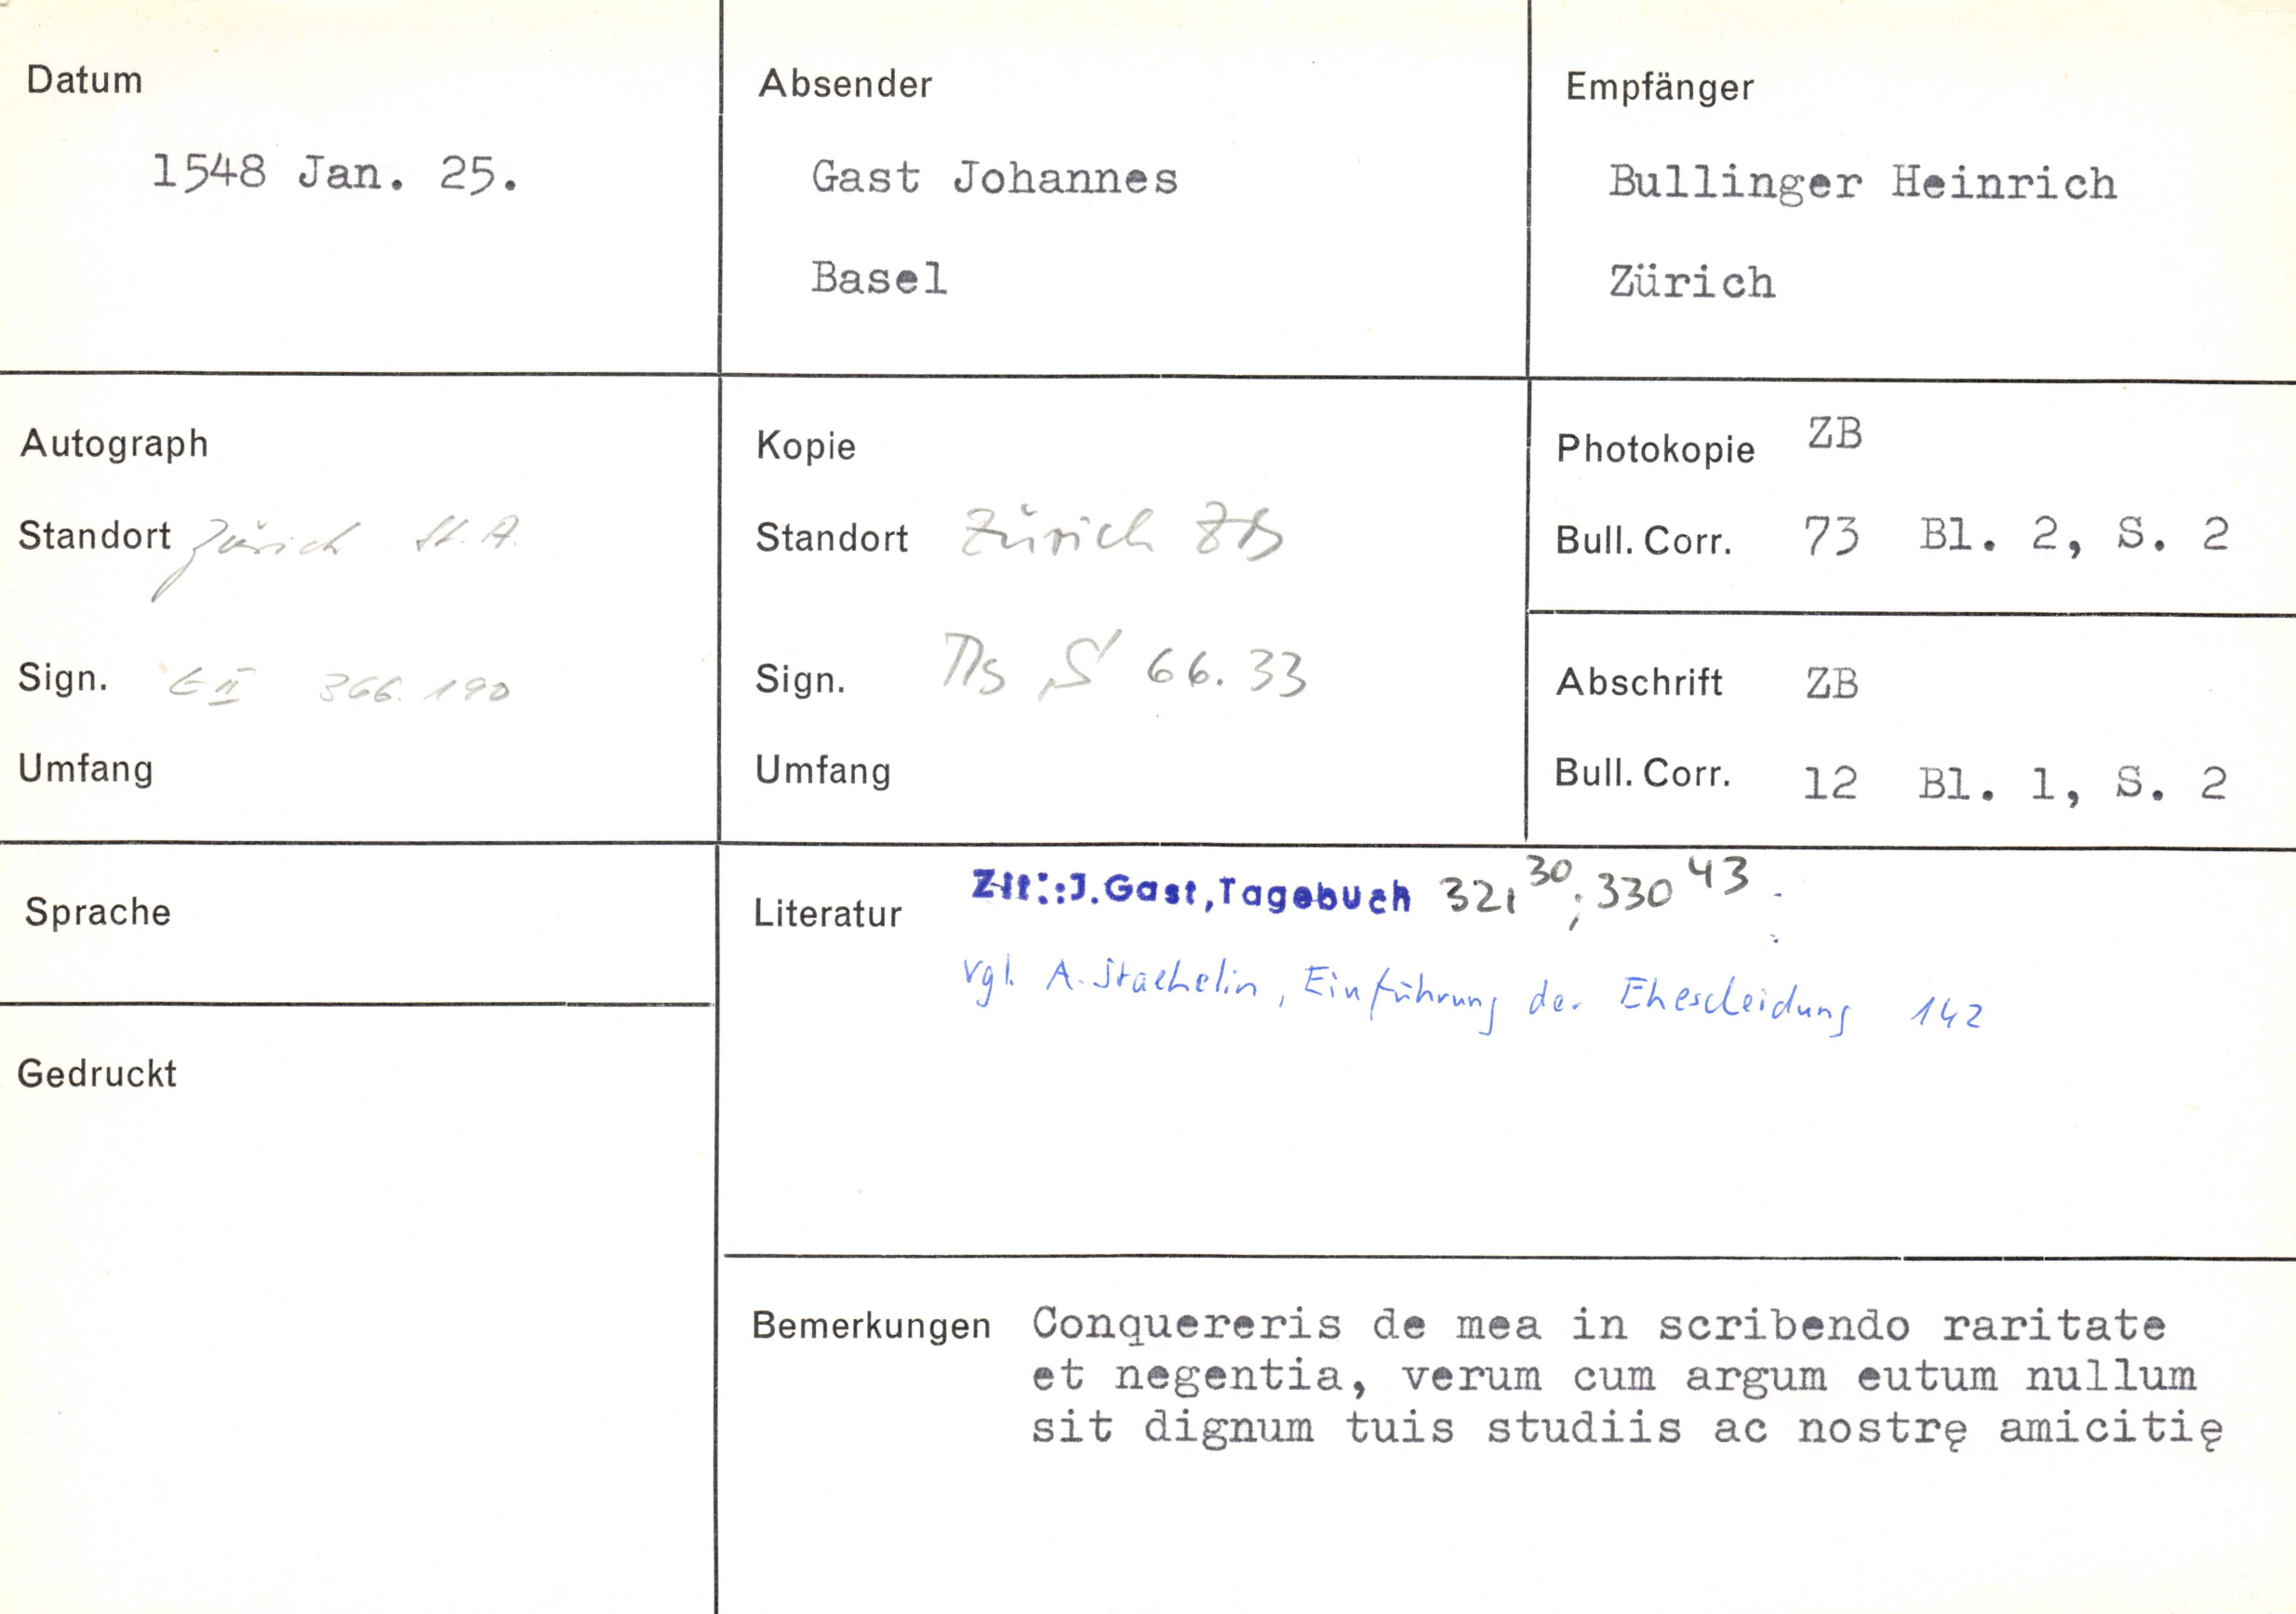 Datum
1548 Jan. 25.
Absender
Gast Johannes
Basel
Empfänger
Bullinger Heinrich
Zürich
Autograph
Standort Zürich St. A.
Sign. E II 366. 190
Umfang
Kopie
Standort Zürich ZB
Sign. Ms S 66. 33
Umfang
Photokopie ZB
Bull. Corr. 73 Bl. 2, S. 2
Abschrift ZB
Bull. Corr. 12 Bl. 1, S. 2
Sprache
Gedruckt
Literatur Zit.:J.Gast,Tagebuch 321 30; 330 43.
vgl. A. Staehelin, Einführung der Ehescheidung 142
Bemerkungen Conquereris de mea in scribendo raritate
et negentia, verum cum argum eutum nullum
sit dignum tuis studiis ac nostrę amicitię